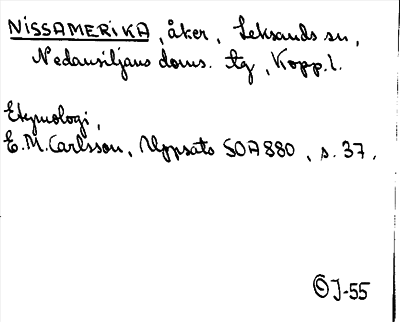 NISSAMERIKA, åker, Leksands sn,
Nedansiljans doms. tg, Kopp.l.
Etymologi,
E.M. Carlsson, Uppsats SOA 880, s. 37.
J-55